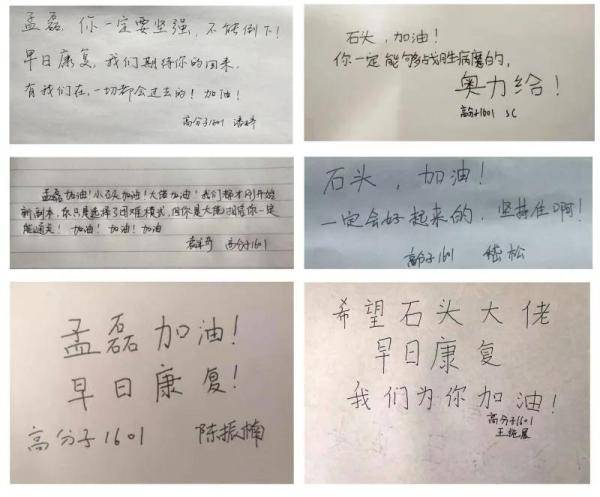 孟磊，你一定要坚强，不能倒下！
早日康复，我们期待你的回来，
有我们在，一切都会过去的！加油！
高分子1601 潘婷
石头，加油！
你一定能够战胜病魔的，
奥力给！
高分子1601 SC
孟磊加油！小石头加油！大佬加油！我们都才刚开始
新副本，你只是选择了困难模式，但你是大佬，相信你一定
能通关！加油！加油！加油
高分子1601
石头，加油！
一定会好起来的，坚持住啊！
高分子1601 嵇松
孟磊加油！
早日康复！
高分子1601 陈振楠
希望石头大佬
早日康复
我们为你加油！
高分子1601